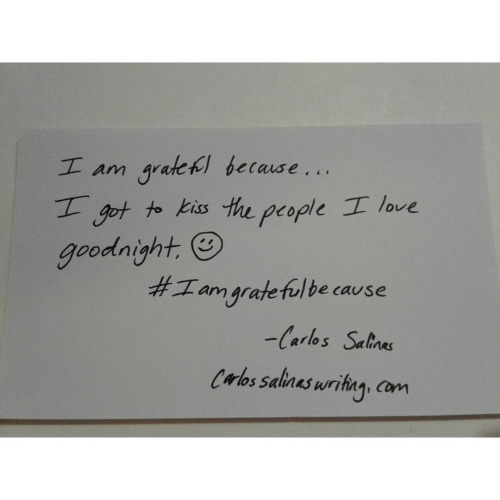 I am grateful because...
I got to kiss the people I love
goodnight. ☺
#Iamgratefulbecause
-Carlos Salinas
Carlossalinaswriting.com